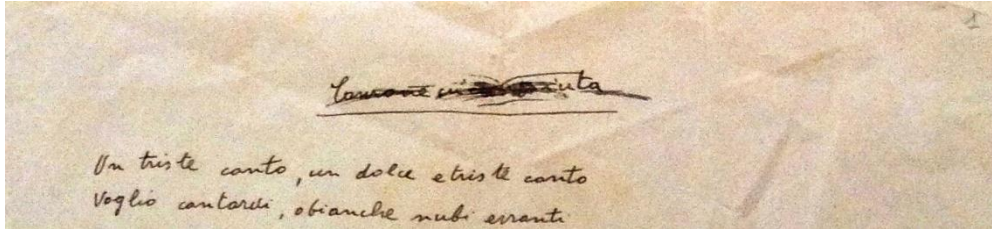 1
Canzone
Un triste canto, un dolce e triste canto
Voglio cantarvi, o bianche nubi erranti